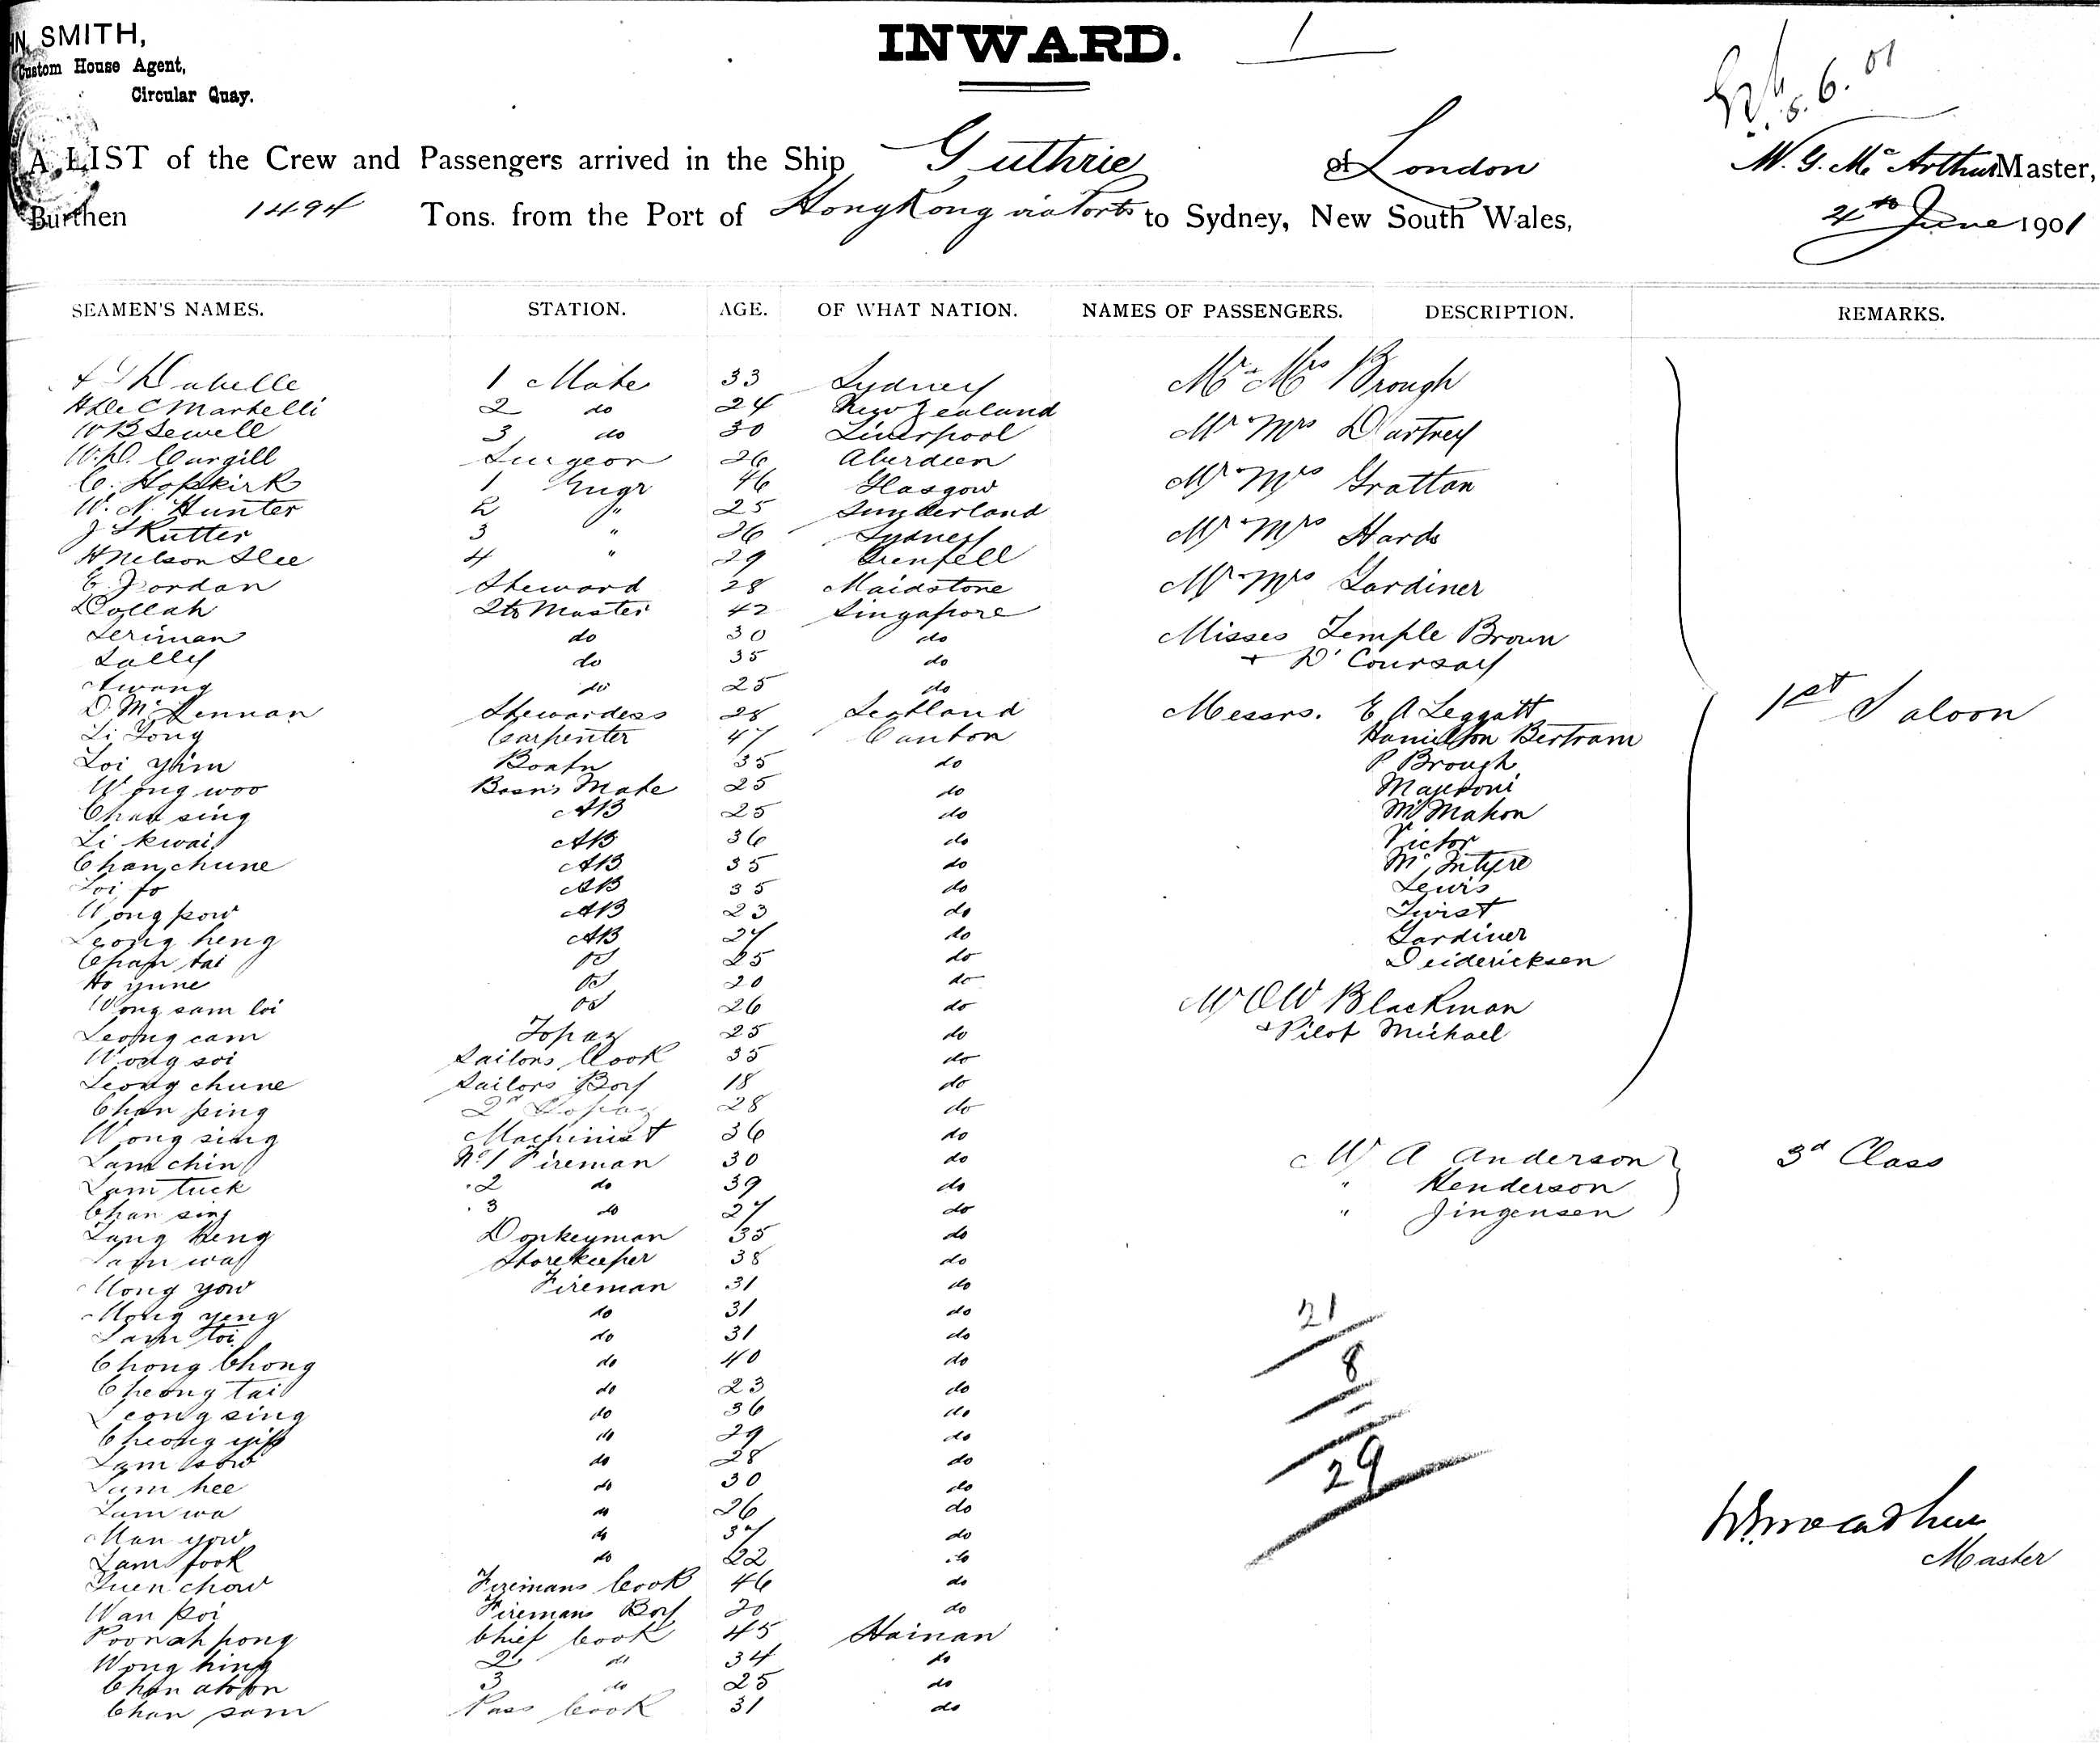 HN. SMITH,
Custom House Agent,
Circular Quay.
INWARD. 1
5.6.01
A LIST of the Crew and Passengers arrived in the Ship Guthrie of London W. G. McArthur Master,
Burthen 1494 Tons. from the Port of HongKong via Ports to Sydney, New South Wales, 4th June 1901
SEAMEN'S NAMES. STATION. AGE. OF WHAT NATION. NAMES OF PASSENGERS. DESCRIPTION. REMARKS.
Dabelle 1 Mate 33 Sydney Mr & Mrs Brough
H De C Martelli 2 do 24 New Zealand
W B Sewell 3 do 30 Liverpool Mr Mrs Dartrey
W. D. Cargill Surgeon 26 Aberdeen
C. Hopkirk 1 Engr 46 Glasgow Mr & Mrs Grattan
W. N. Hunter 2 " 25 Sunderland
J S Rutter 3 " 26 Sydney Mr & Mrs Hards
H Nelson Slee 4 " 29 Grenfell
E. Jordan Steward 28 Maidstone Mr & Mrs Gardiner
Dollah Qtr Master 42 Singapore
Seriman do 30 do Misses Temple Brown
Salley do 35 do & D'Coursay
Awang do 25 do
D. McLennan Stewardess 28 Scotland Messrs. E A Leggatt 1st Saloon
Li Yong Carpenter 47 Canton Hamilton Bertram
Loi yim Boatn 35 do P Brough
Wong woo Bosn's Mate 25 do Majeroni
Chan sing AB 25 do McMahon
Li kwai AB 36 do Victor
Chan chune AB 35 do McIntyre
Loi fo AB 35 do Lewis
Wong pow AB 23 do Twist
Leong heng AB 27 do Gardiner
Chan tai OS 25 do Deidericksen
Ho yune OS 20 do
Wong sam loi OS 26 do Mr O W Blackman
Leong cam Topaz 25 do & Pilot Michael
Wong soi Sailors Cook 35 do
Leong chune Sailors Boy 18 do
Chan ping 2nd Topaz 28 do
Wong sing Machinist 36 do
Lam chin No 1 Fireman 30 do Mr A Anderson 3d Class
Lam tuck 2 do 39 do " Henderson
Chan sing 3 do 27 do " Jingensen
Lang heng Donkeyman 35 do
Lam wa Storekeeper 38 do
Mong yow Fireman 31 do
Mong yeng do 31 do 21
Lam toi do 31 do
Chong Chong do 40 do 8
Cheong tai do 23 do
Leong sing do 36 do
Cheong yip do 29 do
Lam sow do 28 do 29
Lam hee do 30 do
Lam wa do 26 do
Man yow do 37 do
Lam fook do 22 do Master
Yuen chow Firemans Cook 46 do
Wan poi Firemans Boy 20 do
Poon ah pong Chief Cook 45 Hainan
Wong hing 2 do 34 do
Chan ahoon 3 do 25 do
Chan sam Pass Cook 31 do